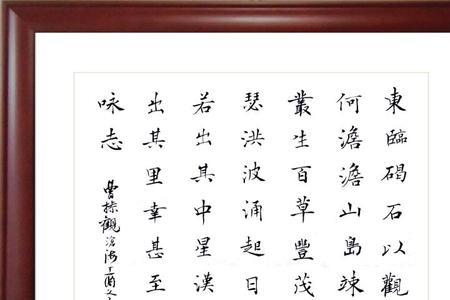 東臨碣石以觀
何澹澹山島竦
叢生百草豐茂
瑟洪波涌起日
若出其中星漢
出其里幸甚至
咏志
曹操觀滄海丁酉